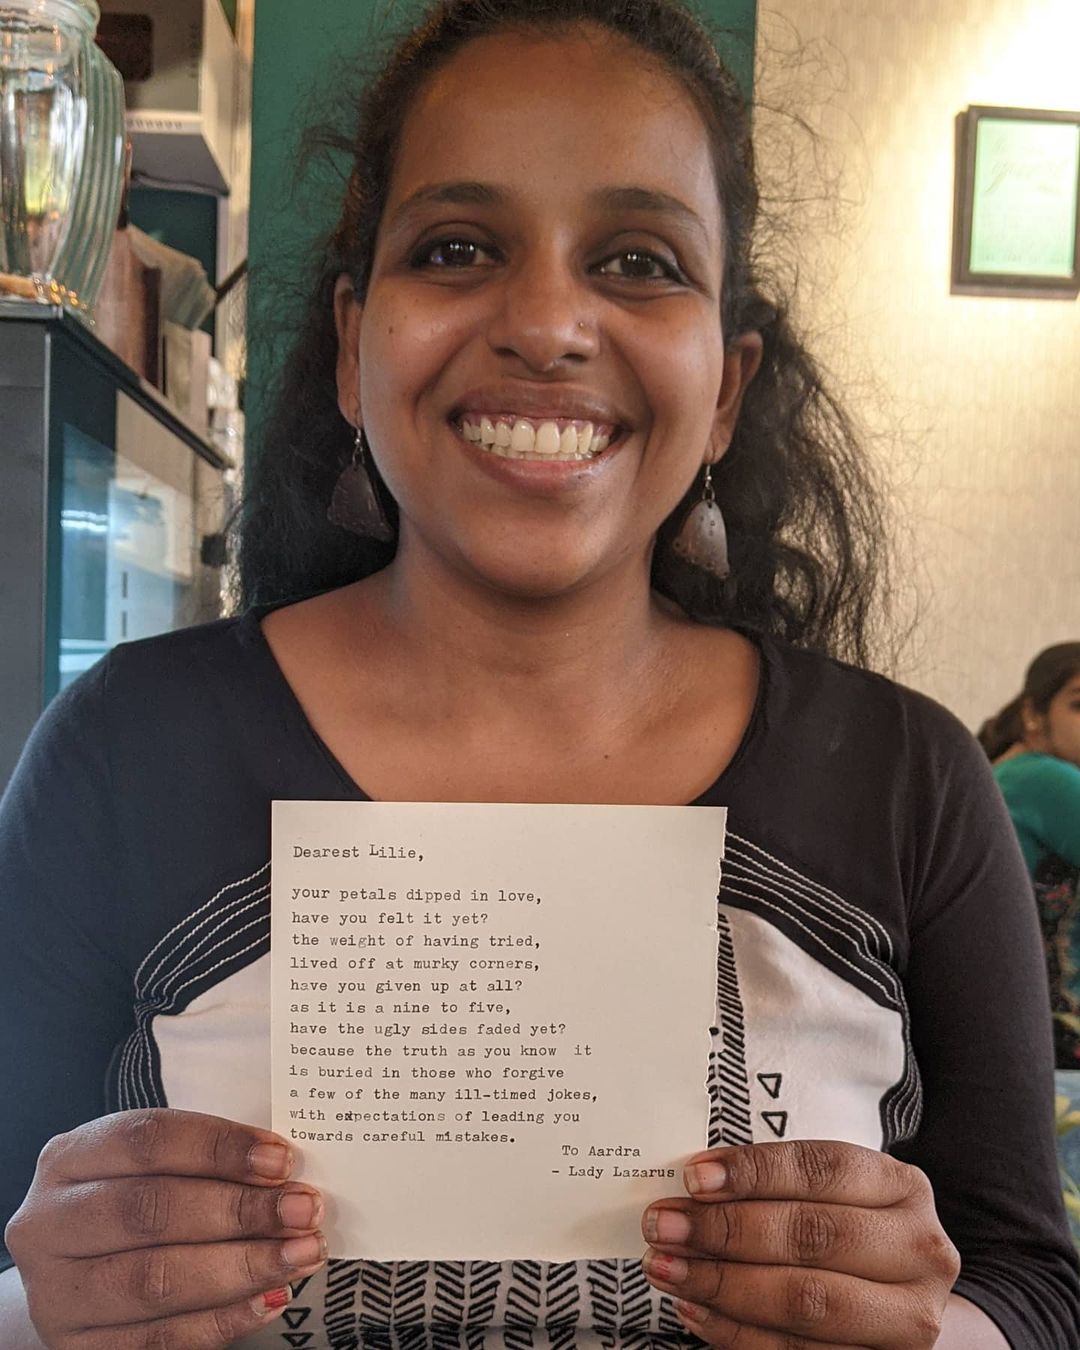 Dearest Lilie,
your petals dipped in love,
have you felt it yet?
the weight of having tried,
lived off at murky corners,
have you given up at all?
as it is a nine to five,
have the ugly sides faded yet?
because the truth as you know it
is buried in those who forgive
a few of the many ill-timed jokes,
with expectations of leading you
towards careful mistakes.
To Aardra
- Lady Lazarus